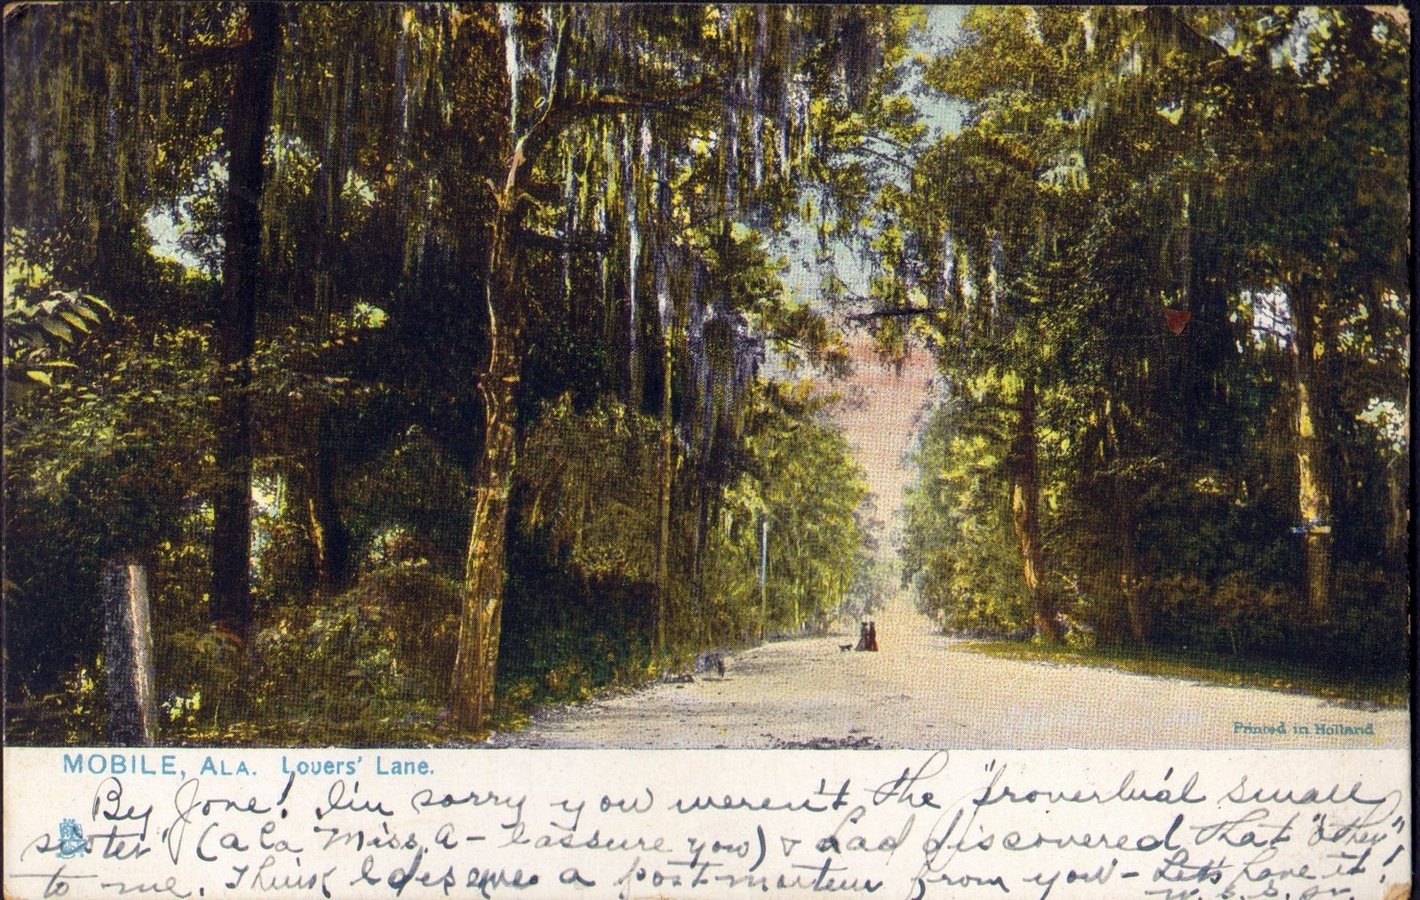 Printed in Holland
MOBILE, ALA. Lovers' Lane.
By Jove! I'm sorry you weren't the "proverbial small
sister" (a la Miss A - I assure you) & had discovered that "other"
to me. Think I deserve a post-mortem from you - Let's have it!